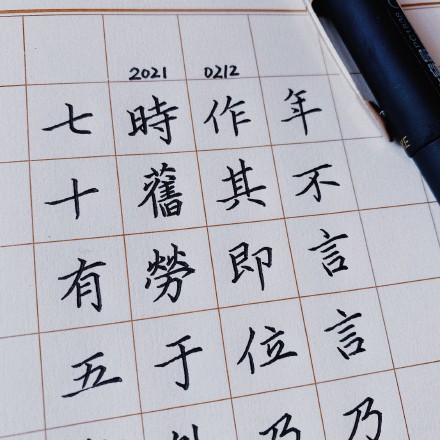 2021 0212
七十有五
時舊勞于外
作其即位乃
年不言言乃